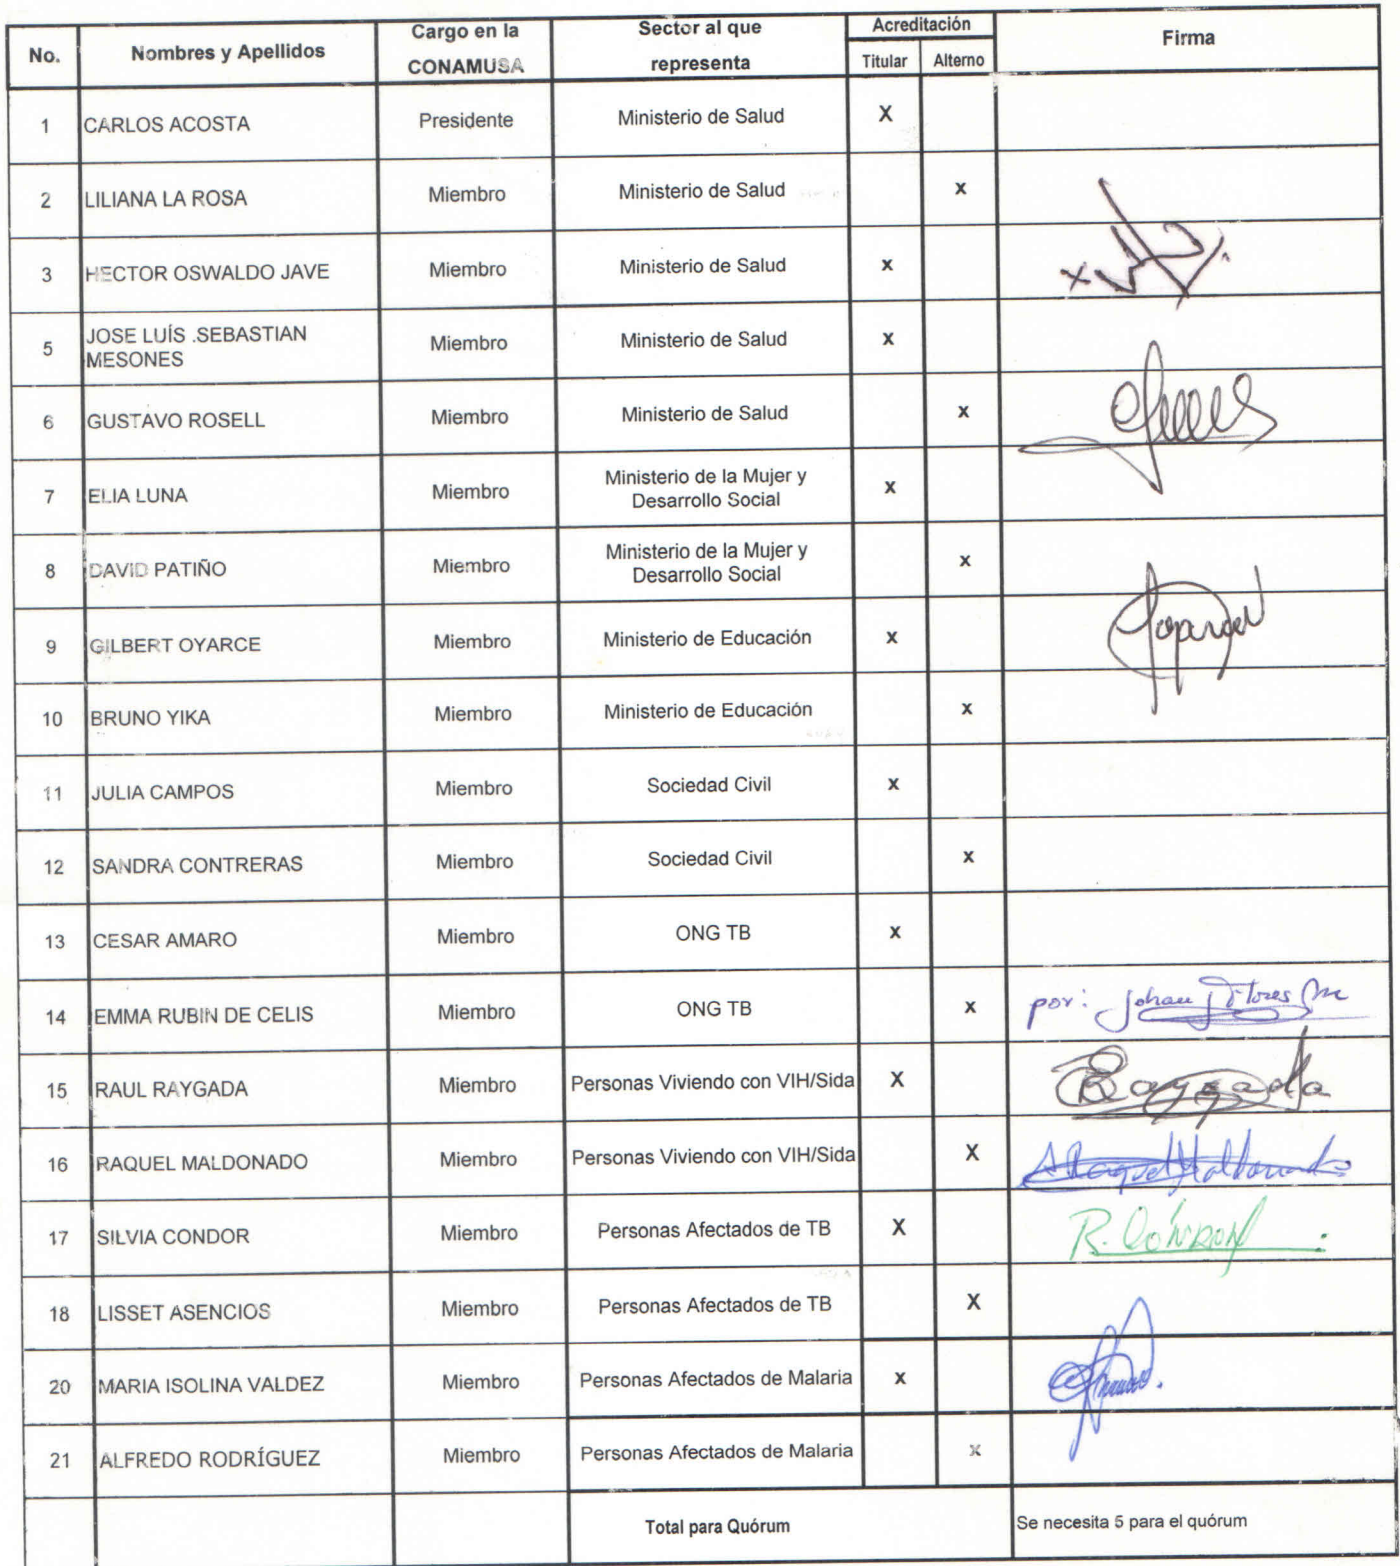 No. Nombres y Apellidos Cargo en la CONAMUSA Sector al que representa Acreditación Firma
Titular Alterno
1 CARLOS ACOSTA Presidente Ministerio de Salud X
2 LILIANA LA ROSA Miembro Ministerio de Salud x
3 HECTOR OSWALDO JAVE Miembro Ministerio de Salud x
5 JOSE LUÍS .SEBASTIAN MESONES Miembro Ministerio de Salud x
6 GUSTAVO ROSELL Miembro Ministerio de Salud x
7 ELIA LUNA Miembro Ministerio de la Mujer y Desarrollo Social x
8 DAVID PATIÑO Miembro Ministerio de la Mujer y Desarrollo Social x
9 GILBERT OYARCE Miembro Ministerio de Educación x
10 BRUNO YIKA Miembro Ministerio de Educación x
11 JULIA CAMPOS Miembro Sociedad Civil x
12 SANDRA CONTRERAS Miembro Sociedad Civil x
13 CESAR AMARO Miembro ONG TB x
14 EMMA RUBIN DE CELIS Miembro ONG TB x por:
15 RAUL RAYGADA Miembro Personas Viviendo con VIH/Sida X Raygada
16 RAQUEL MALDONADO Miembro Personas Viviendo con VIH/Sida X Raquel Maldonado
17 SILVIA CONDOR Miembro Personas Afectados de TB X
18 LISSET ASENCIOS Miembro Personas Afectados de TB X
20 MARIA ISOLINA VALDEZ Miembro Personas Afectados de Malaria x
21 ALFREDO RODRÍGUEZ Miembro Personas Afectados de Malaria x
Total para Quórum Se necesita 5 para el quórum